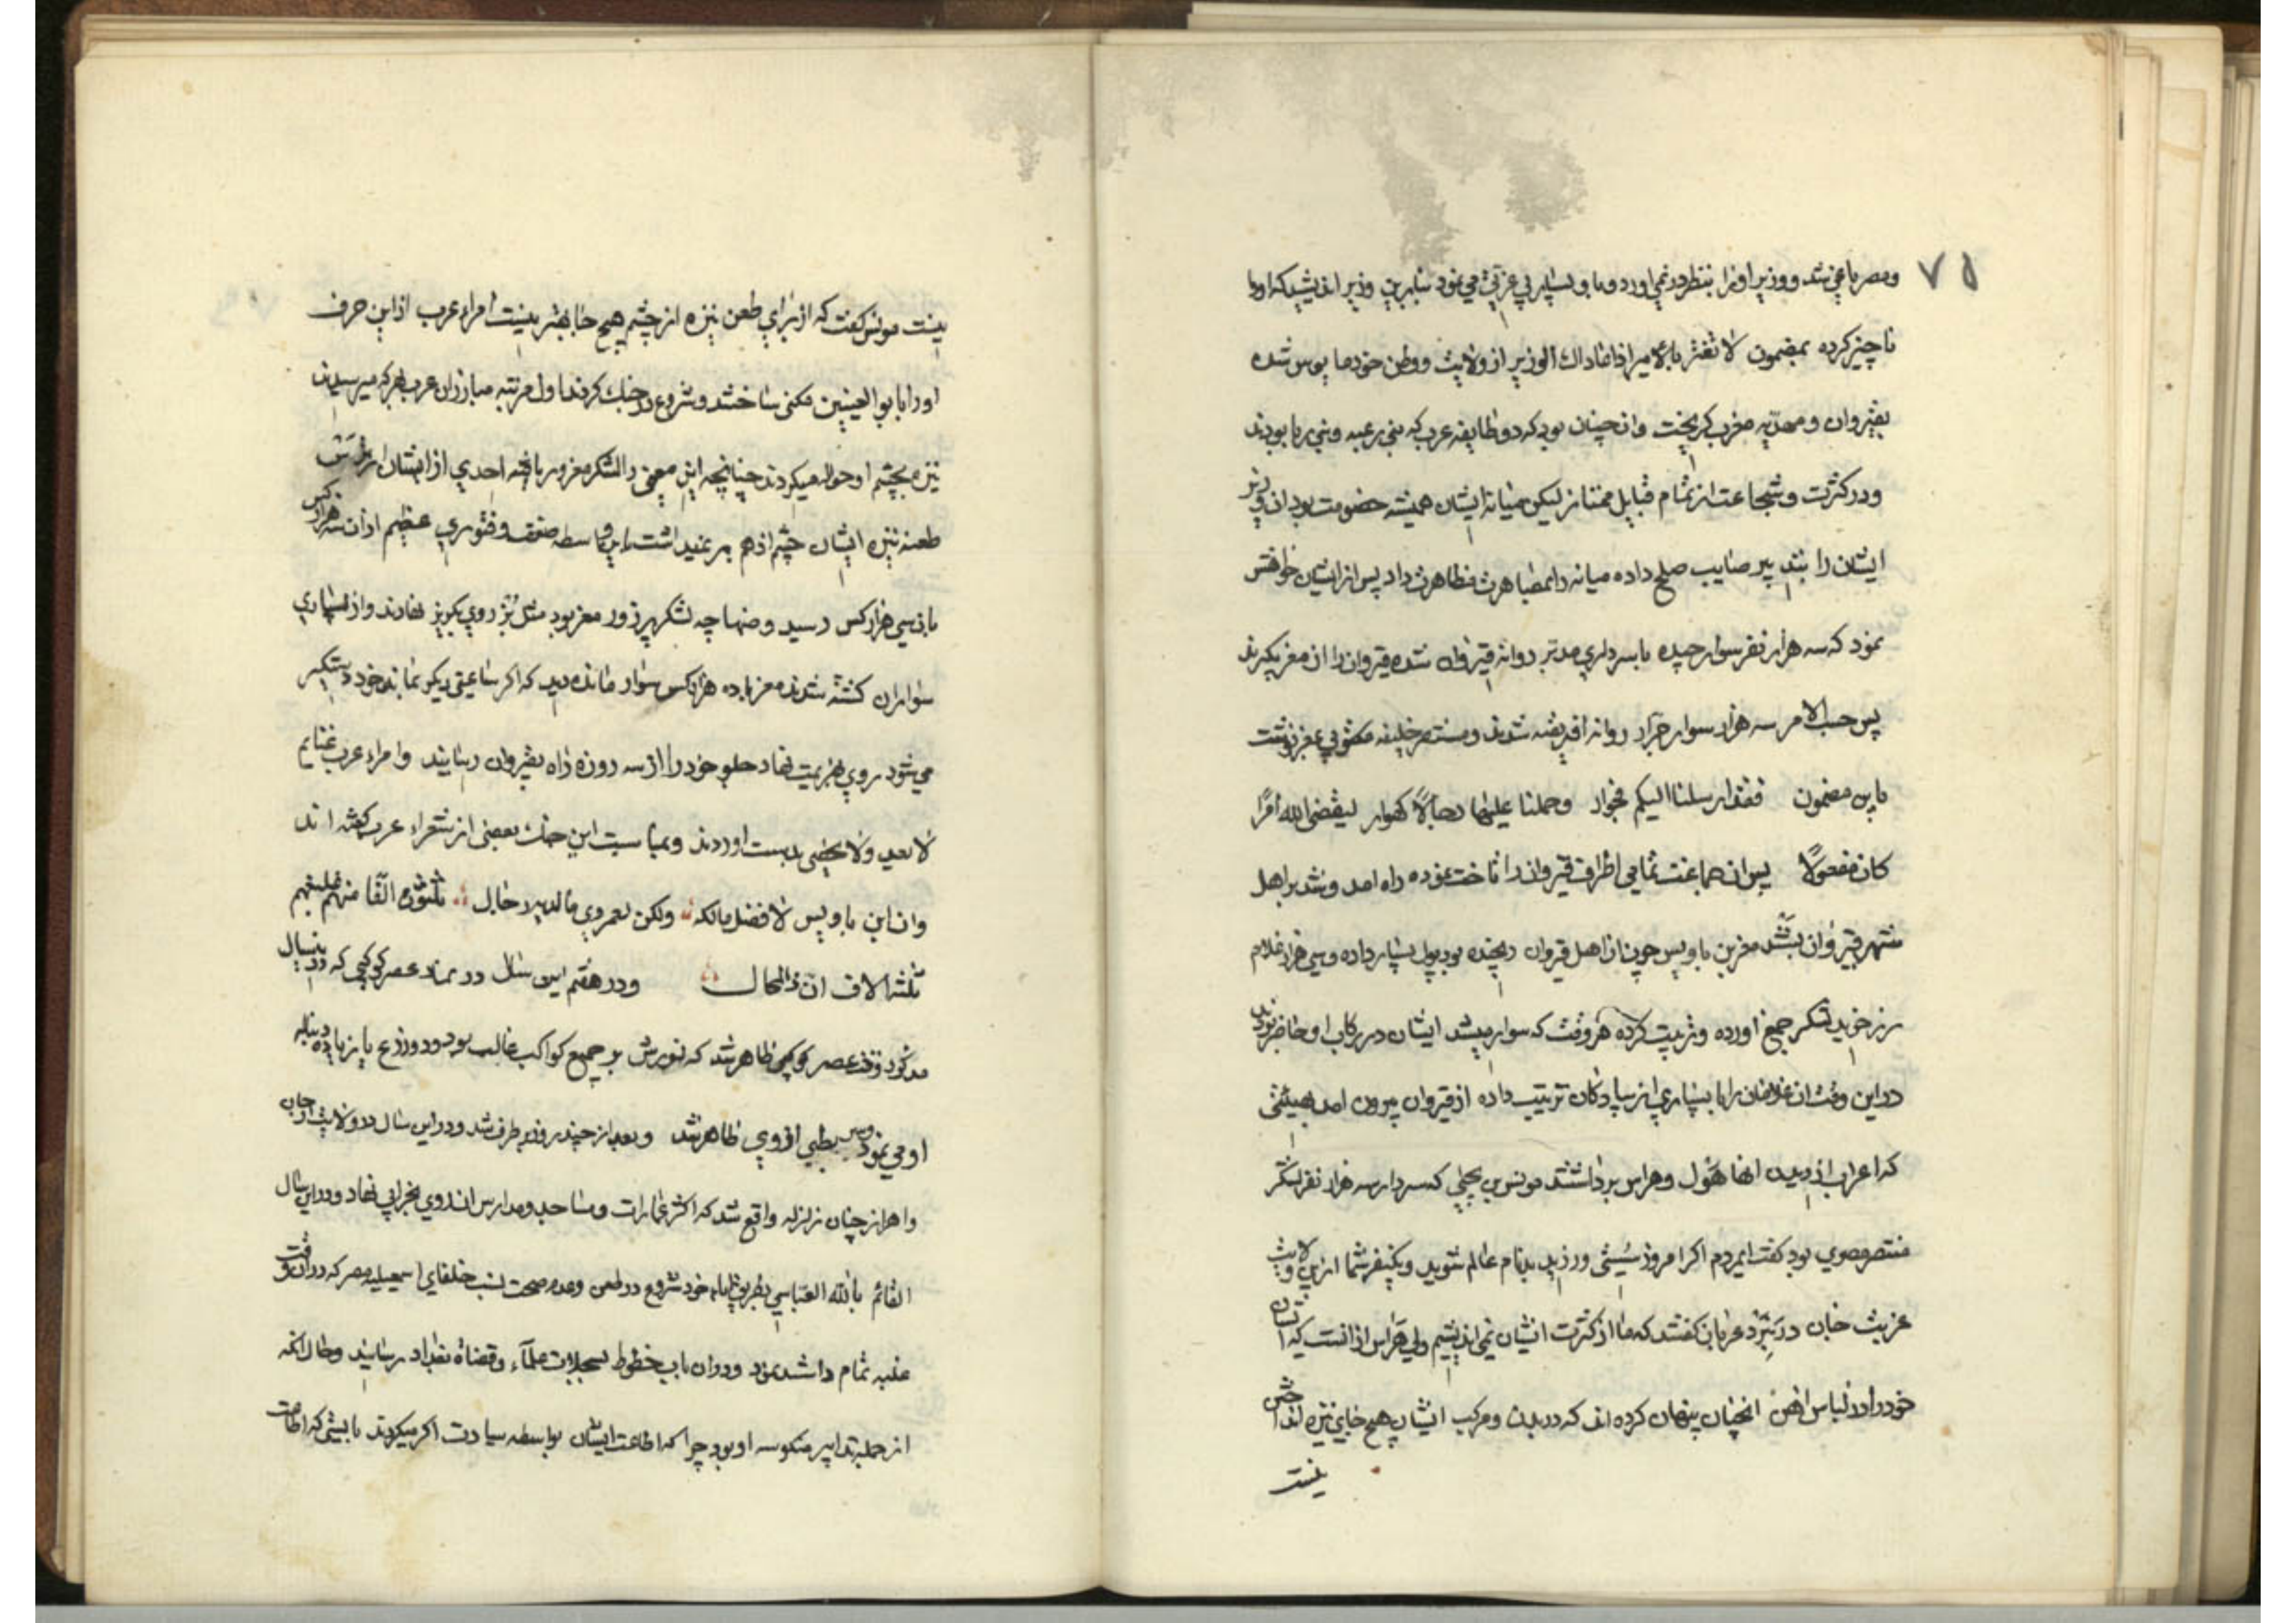 ۷۵
ومصر یاغی شد ووزیر اورا بنظر در نمی اورد و با و بسیار بی عزتی می نمود بنابرین وزیر اندیشید که اورا
ناچیز کرده بمضمون لا تغتر بالامیر اذا غاداك الوزیر از ولایت ووطن خود مایوس شده
بقیروان ومهدیه مغرب کریخت وان چنان بود که دو طایفه عرب که بنی زعبه وبنی ریا بودند
ودر کثرت وشجاعت از تمام قبایل ممتاز لیکن میانه ایشان همیشه خصومت بود ان وزیر
ایشان را بتدبیر صایب صلح داده میانه را بمظاهرت داد پس از ایشان خواهش
نمود که سه هزار نفر سوار چیده با سرداری مدبر روانه قیروان شده قیروان را از معز بکیرند
پس حسب الامر سه هزار سوار جرار روانه افریقیه شدند ومستنصر خلیفه مکتوبی بمعز نوشت
باین مضمون فقد ارسلنا الیکم فحول وحملنا علیها رجالاً کهول لیقضی الله امرًا
کان مفعولاً پس ان جماعت تمامی اطراف قیروان را تاخت نموده راه امد وشد بر اهل
شهر قیروان بستند معز بن بادیس چون از اهل قیروان رنجیده بود پول بسیار داده وسی هزار غلام
زر خرید لشکر جمع اورده وتربیت کرده هر وقت که سوار میشد ایشان در رکاب او حاضر بودند
در این وقت ان غلامان را با بسیاری از سپاه کان ترتیب داده از قیروان بیرون امد بهیئتی
که اعراب از دیدن انها هول وهراس برداشتند مونس بن یحیی که سردار سه هزار نفر لشکر
منتصر موصوی بود کفت ایمردم اکر امروز سستی ورزید بدنام عالم شوید ویکنفر شما ازین ولایت
غربت جان در نبرد عربان کفتند که ما از کثرت ایشان نمی اندیشیم ولی هراس از انست که ایشان
خود را در لباس اهن انچنان پنهان کرده اند که در بدن ومرکب ایشان هیچ جای نیزه انداختن
نیست
نیست مونس کفت که از برای طعن نیزه از چشم هیچ جا بهتر نیست امراء عرب از این حرف
اورا بابو العینین مکنی ساختند وشروع در جنك کردند اول مرتبه مبارزان عرب بهر که میرسیدند
نیزه بچشم او حواله میکردند چنانچه این معنی را لشکر معز دریافته احدی از ایشان از ترس
طعنه نیزه ایشان چشم از هم بر نمیداشت باین واسطه ضعف وفتوری عظیم از ان سه هزار کس
باین سی هزار کس رسید وضهاچه لشکر پر زور معز بود مثل بز روی بکریز نهادند واز بسیاری
سواران کشته شدند معز با ده هزار کس سوار مانده دید که اکر ساعتی دیکر بماند خود دستکیر
می شود روی بهزیمت نهاد جلو خود را از سه روزه راه بقیروان رسانید وامراء عرب غنایم
لا یعد ولا یحصی بدست اوردند وبمناسبت این جنك بعضی از شعراء عرب کفته اند
وان ابن بادیس لافضل مالك ولکن لعمری ما لدیه رجال ثلثون الفا منهم غلبتهم
ثلثه الاف ان ذا لمحال ودر هفتم این سال در نماد عصر کوکبی که در این سال
مذکور وقت عصر کوکبی ظاهر شد که نورش بر جمیع کواکب غالب بود ودو وزرع یا زیاده دنباله
او می نمود وسیر بطی از وی ظاهر شد وبعد از چند روز بر طرف شد ودر این سال در ولایت ارجان
واهواز چنان زلزله واقع شد که اکثر عمارات ومساجد ومدارس انها روی بخرابی نهاد ودر این سال
القائم بالله العباسی بطریق اباء خود شروع در طعن وعدم صحت نسب خلفای اسمعیلیه مصر که در ان وقت
غلبه تمام داشتند نمود ودر ان باب خطوط بسجلات علماء وقضاة بغداد رسانید وحال انکه
از جمله تدابیر منکوسه او بود چرا که اطاعت ایشان بواسطه سیادت اکر میکردند بایستی که اطاعت